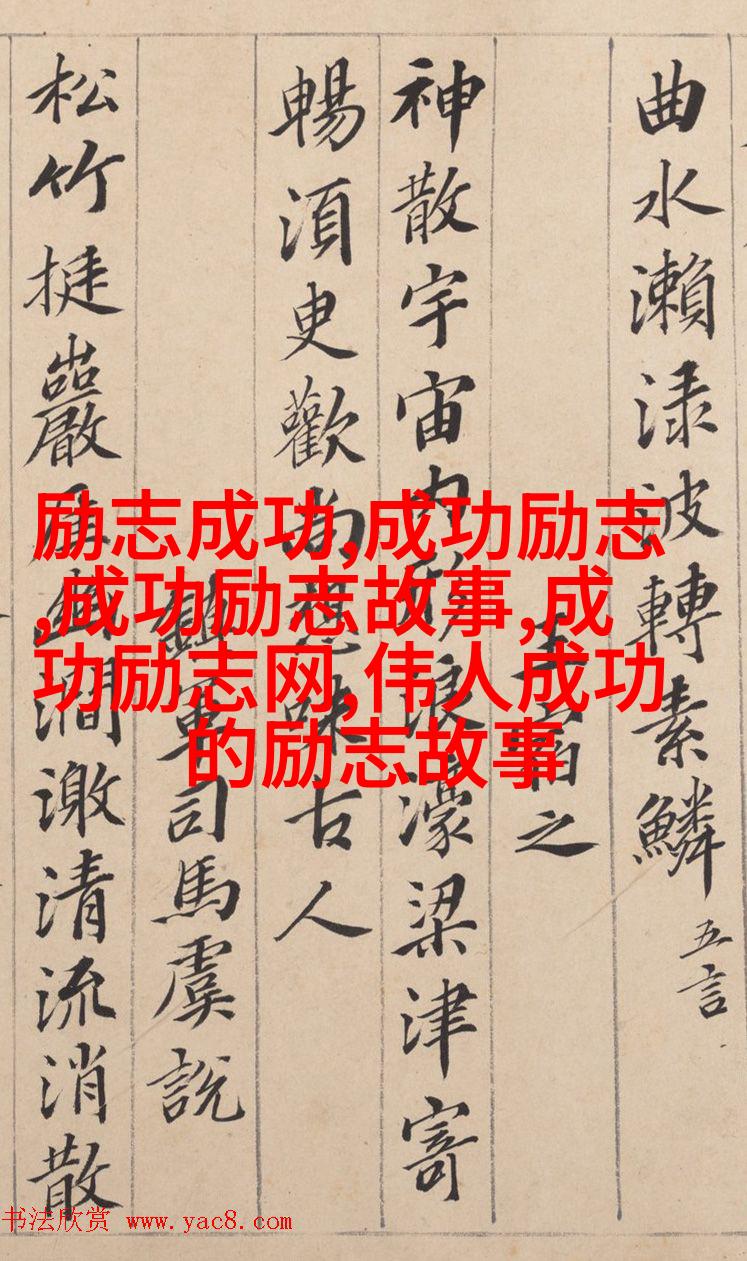 曲水瀨渌波轉素鱗 五言
之
神散宇宙内形浪濠梁津寄
暢須臾歡尚想味古人
軍司馬虞說
松竹挺巖崖幽澗激清流消散
励志成功,成功励志
,成功励志故事,成
功励志网,伟人成功
的励志故事
书法欣赏 www.yac8.com